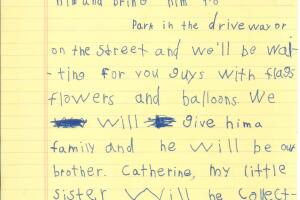 him and bring him to
Park in the driveway or
on the street and we'll be wai
-ting for you guys with flags
flowers and balloons. We
will give him a
family and he will be our
brother. Catherine, my little
sister will be collect-